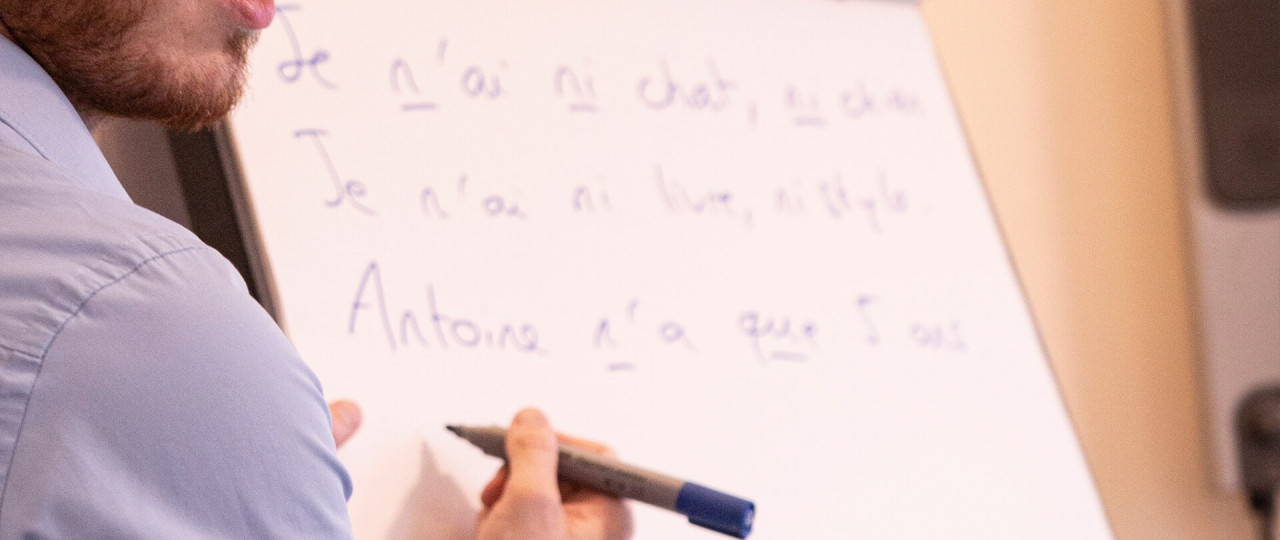 Je n'ai ni chat, ni chien
Je n'ai ni livre, ni stylo.
Antoine n'a que 5 ans